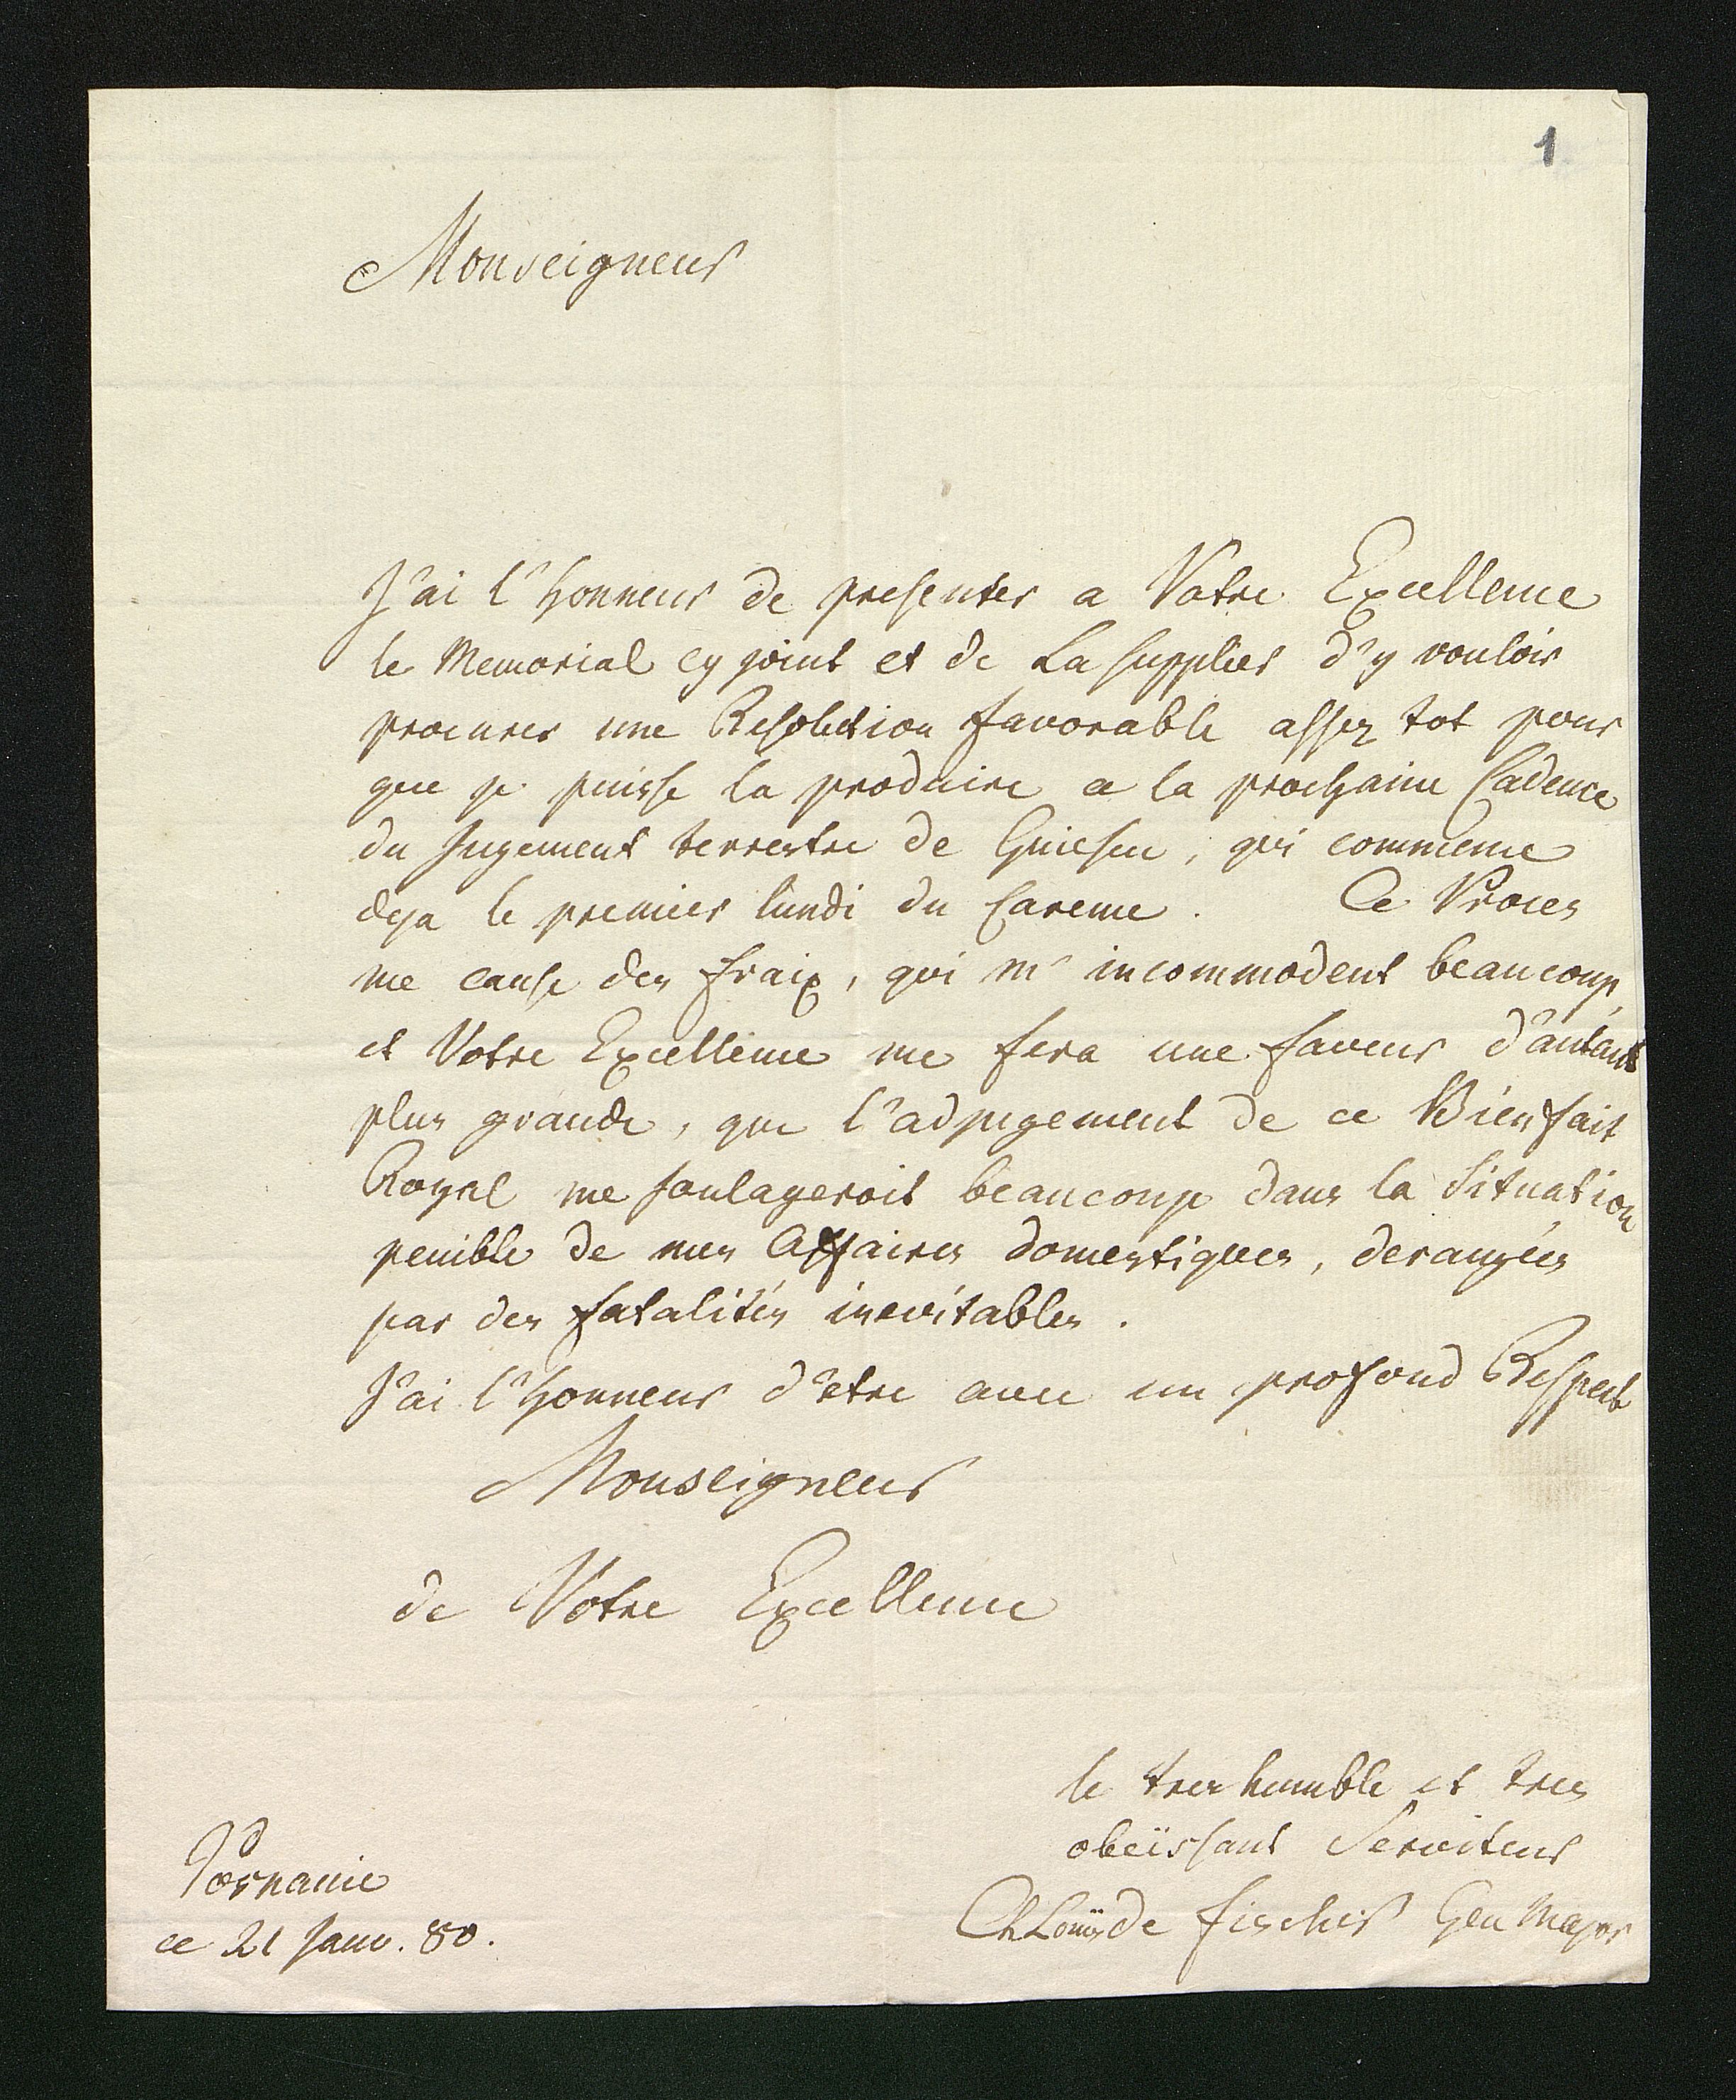 1
Monseigneur
J'ai l'honneur de presenter a Votre Excellence
le Memorial cy joint et de La supplier d'y vouloir
procurer une Resolution favorable assez tot pour
que je puisse la produire a la prochaine Cadence
du Jugement terrestre de Gniesen, qui commence
deja le premier lundi du Careme. Ce Proces
me cause des fraix, qui m'incommodent beaucoup,
et Votre Excellence me fera une faveur d'autant
plus grande, que l'adjugement de ce Bienfait
Royal me soulageroit beaucoup dans la Situation
penible de mes Affaires domestiques, derangées
par des fatalités inevitables.
J'ai l'honneur d'etre avec un profond Respect
Monseigneur
de Votre Excellence
le tres humble et tres
obeïssant Serviteur
Ch Louis de Fischer Gen Major
Posnanie
ce 21 Janv. 80.